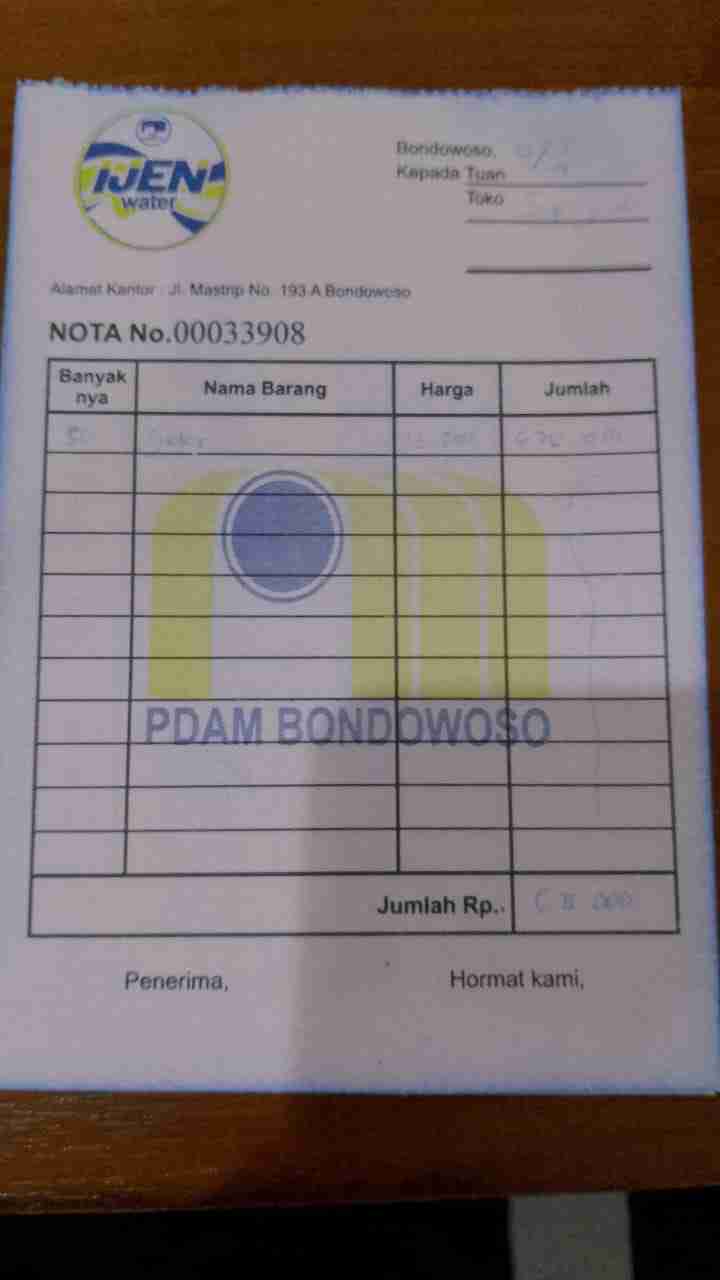 IJEN
water
Bondowoso,
Kepada Tuan
Toko
Alamat Kantor : Jl. Mastrip No. 193 A Bondowoso
NOTA No.00033908
Banyak nya Nama Barang Harga Jumlah
PDAM BONDOWOSO
Jumlah Rp..
Penerima, Hormat kami,